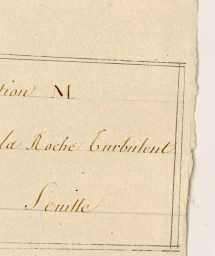 tion M
la Roche Turbulent
Feuille